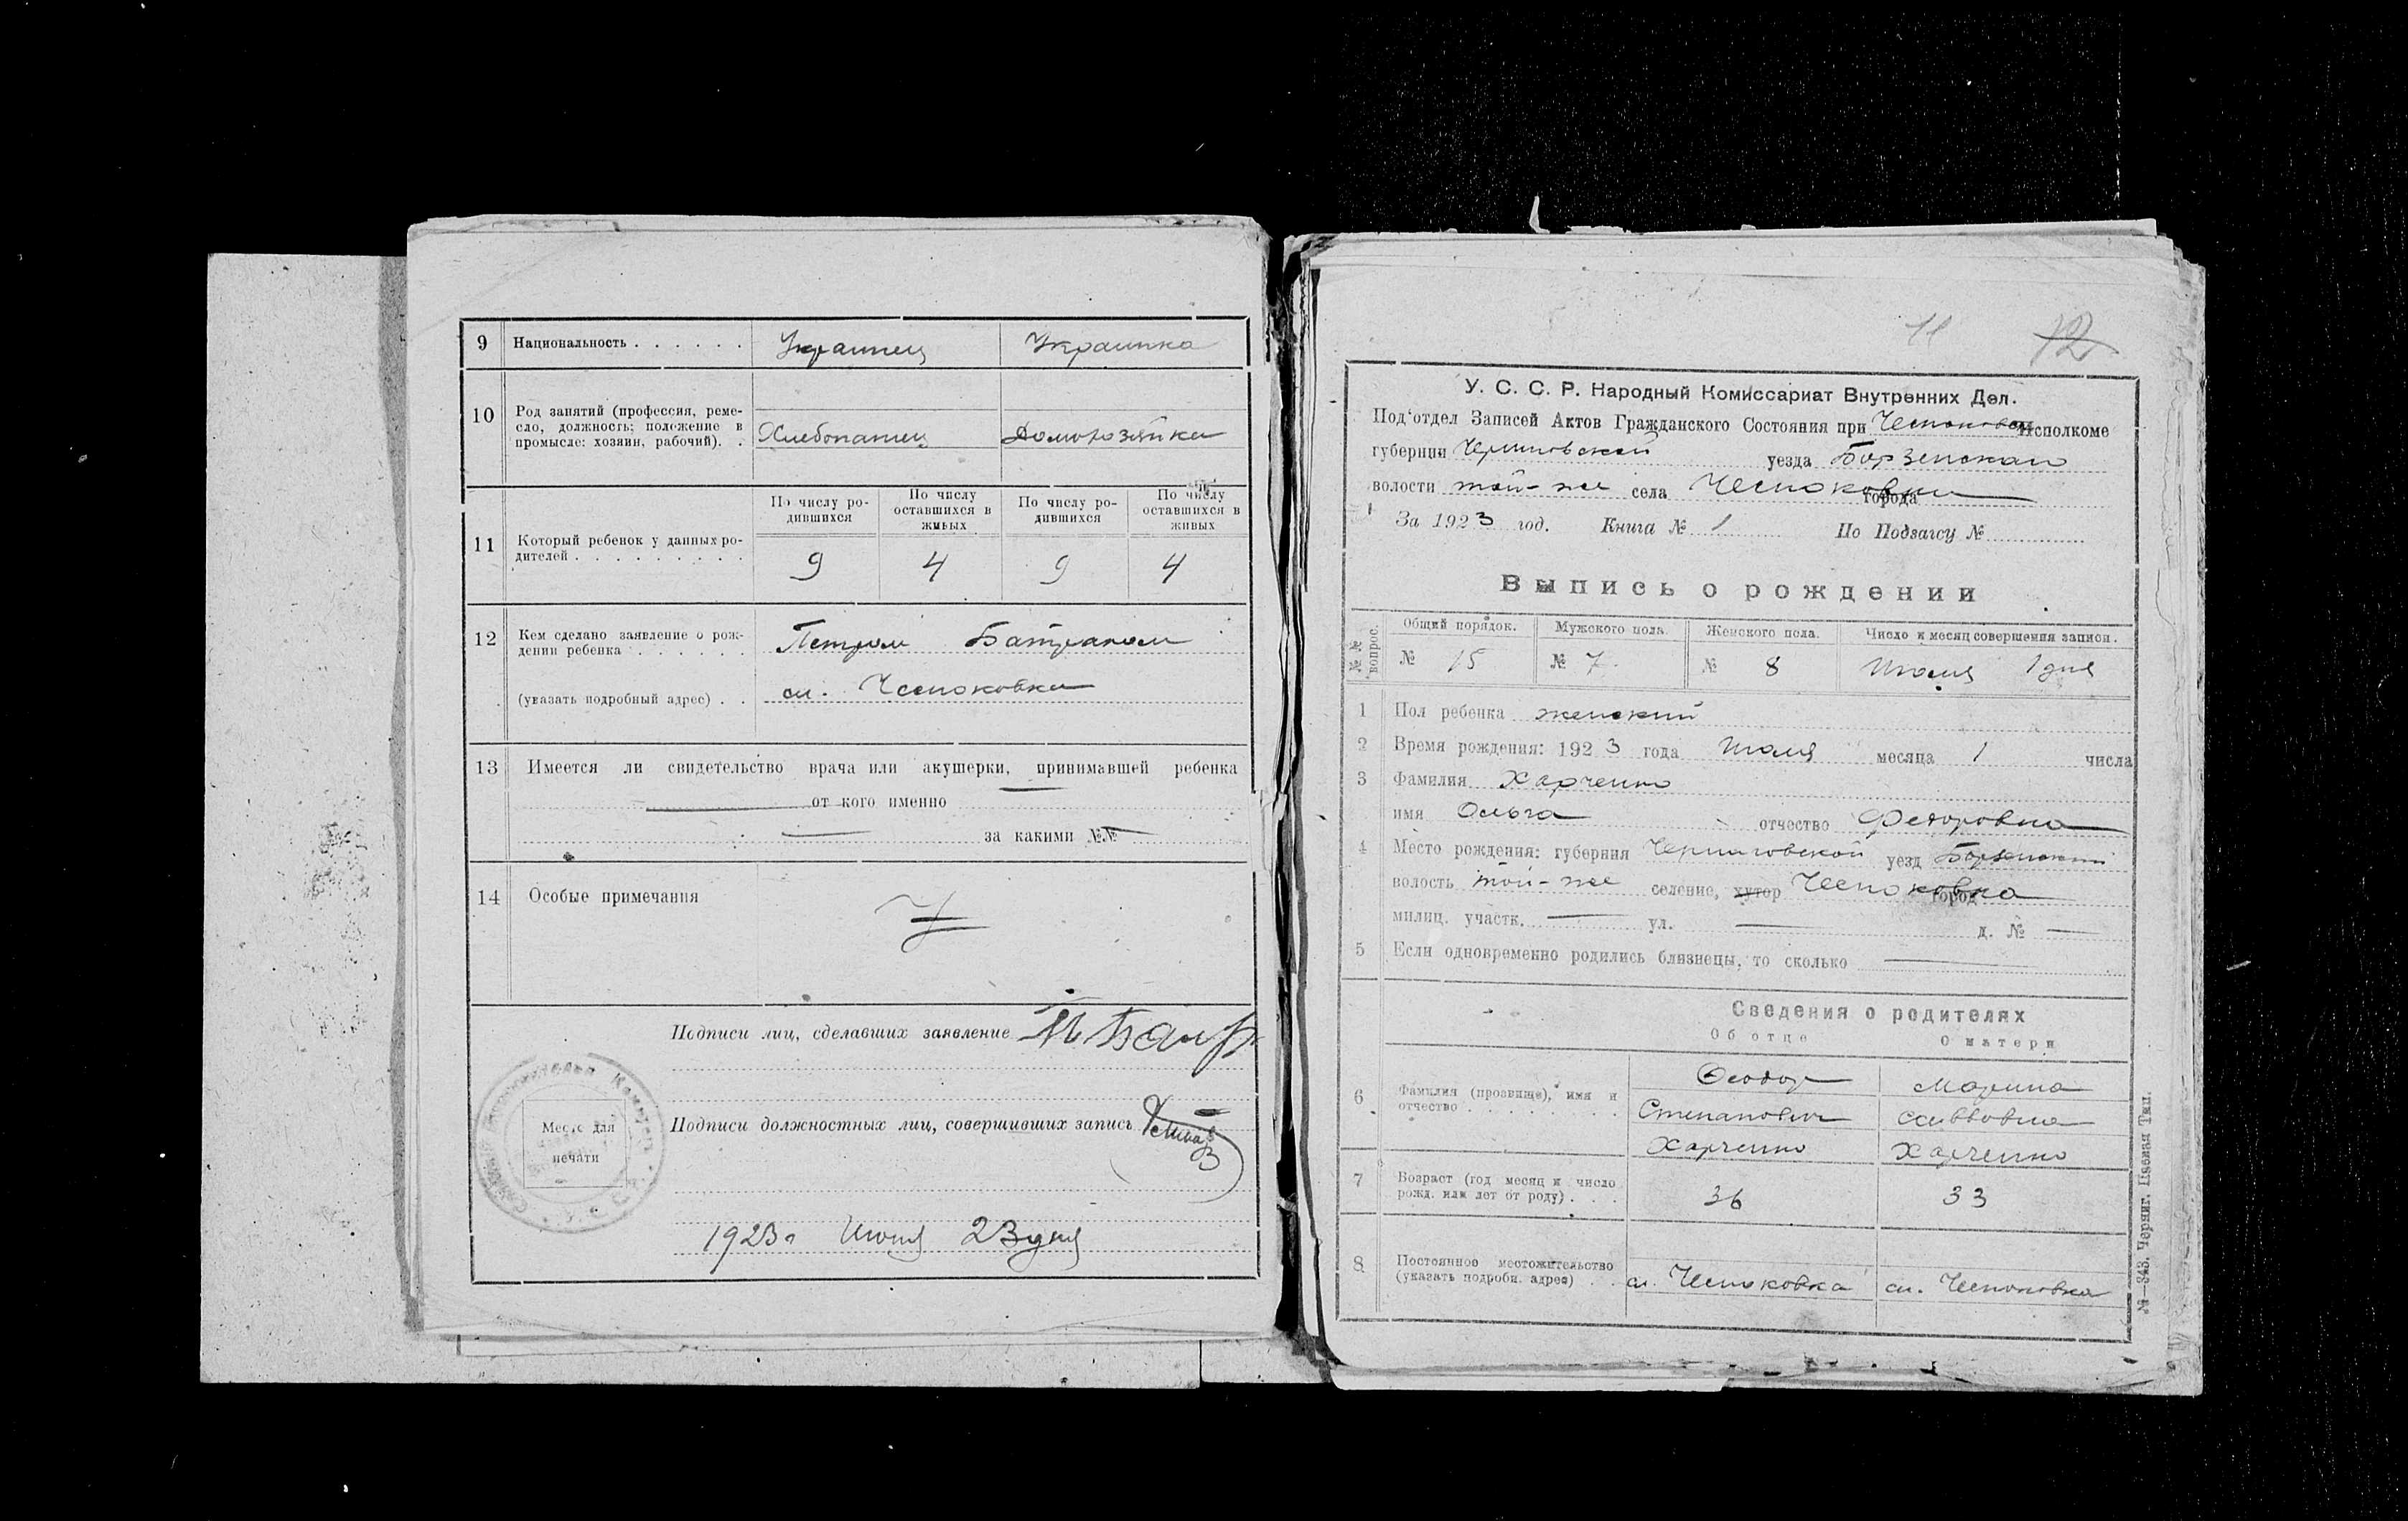 9 Национальность . . . . . . Украинец Украинка
10 Род занятий (профессия, реме-
сло, должность; положение в
промысле: хозяин, рабочий). . Хлебопашец Домохозяйка
По числу ро-
дившихся
По числу
оставшихся в
живых
По числу ро-
дившихся
По числу
оставшихся в
живых
11 Который ребенок у данных ро-
дителей . . . . . . . . . 9 4 9 4
12 Кем сделано заявление о рож-
дении ребенка . . . . . . Петром Батраком
(указать подробный адрес) . . сл. Чесноковка
13 Имеется ли свидетельство врача или акушерки, принимавшей ребенка
от кого именно
за какими №№
14 Особые примечания
Подписи лиц, сделавших заявление
Подписи должностных лиц, совершивших запись
Место для
печати
1923 г Июня 23 дня
11 12
У. С. С. Р. Народный Комиссариат Внутренних Дел.
Под'отдел Записей Актов Гражданского Состояния при Исполкоме
губернии Черниговской уезда Борзенскаго
волости той-же села Чесноковки города
За 1923 год. Книга № 1 По Подзагсу №
Выпись о рождении
№№ вопрос. Общий порядок. Мужского пола. Женского пола. Число и месяц совершения записи.
№ 15 № 7 № 8 Июля 1 дня
1 Пол ребенка женский
2 Время рождения: 1923 года Июля месяца 1 числа
3 Фамилия Харченко
имя Ольга отчество Федоровна
4 Место рождения: губерния Черниговской уезд Борзенский
волость той-же селение, хутор Чесноковка город
милиц. участк. ул. д. №
5 Если одновременно родились близнецы, то сколько
Сведения о родителях
Об отце О матери
6 Фамилия (прозвище), имя и
отчество . . . . . . . .
Феодор Марина
Степанович Савовна
Харченко Харченко
7 Возраст (год месяц и число
рожд. или лет от роду) . . . 36 33
8 Постоянное местожительство
(указать подробн. адрес) . . сл. Чесноковка сл. Чесноковка
№—343. Черниг. Цневая Тип.